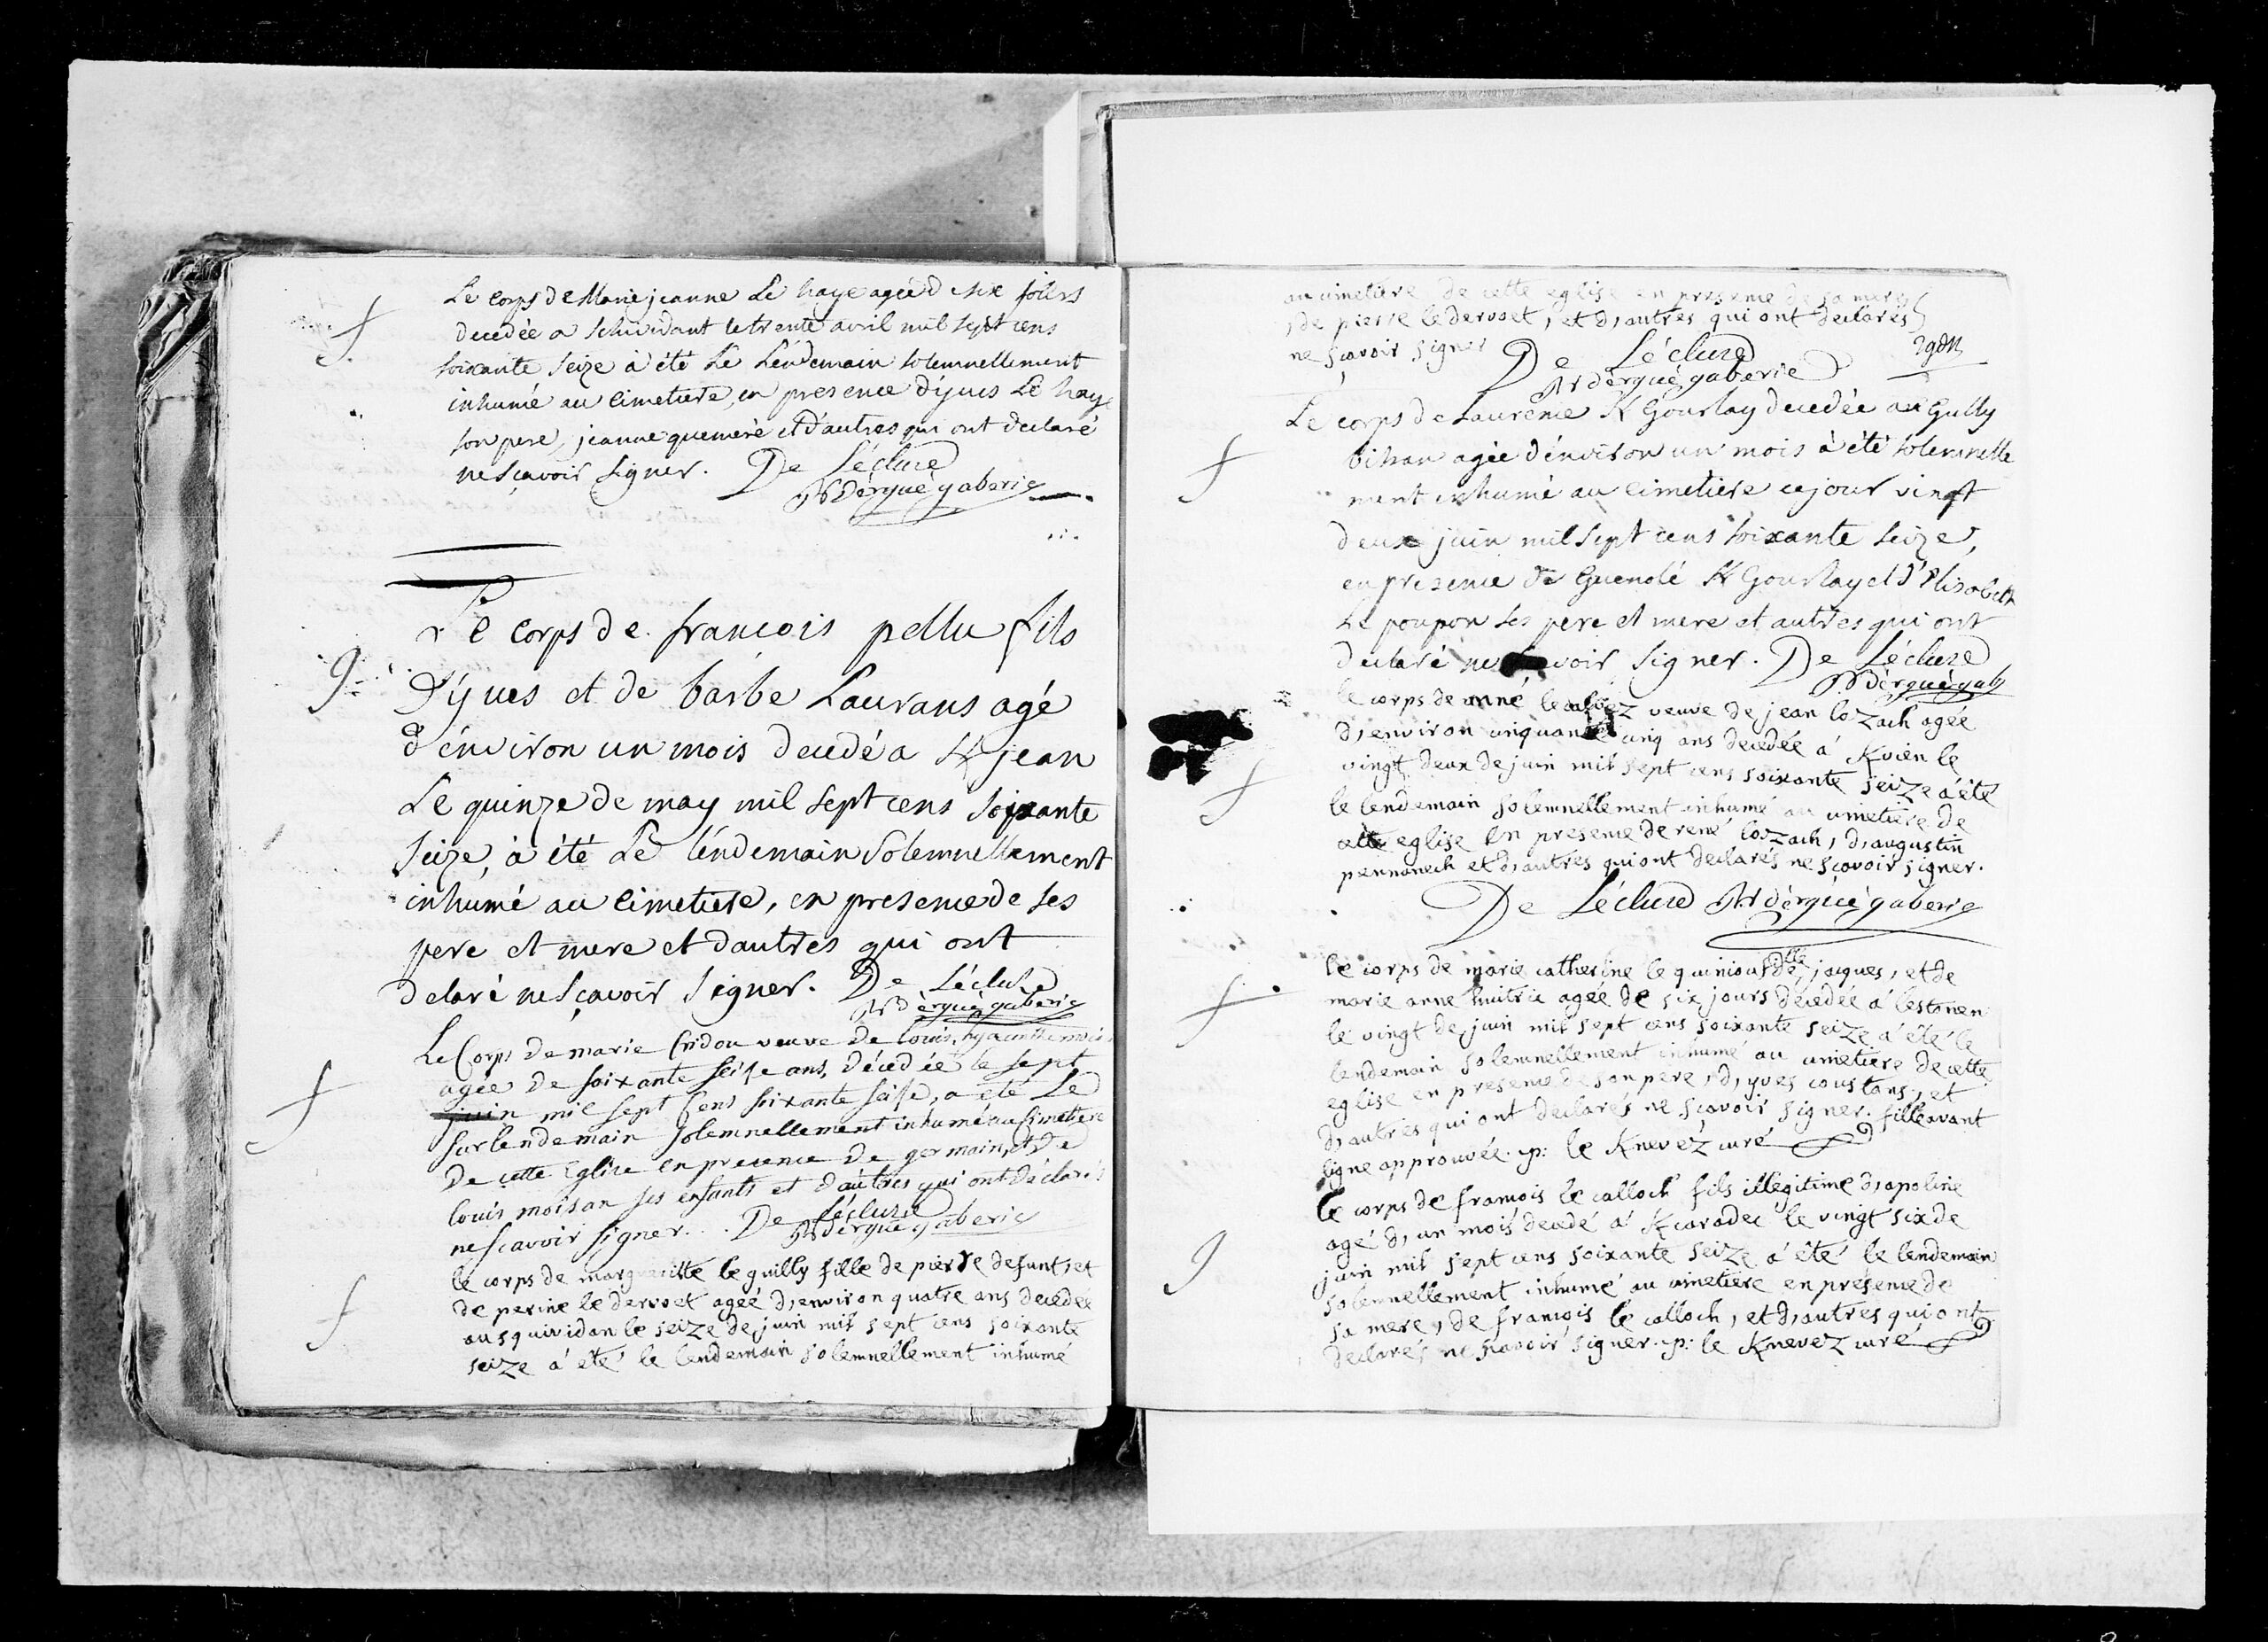 f
Le corps de Marie jeanne Le haye agée de six jours
decedée a le trente avril mil sept cens
soixante seize à été Le Lendemain solemnellement
inhumé au cimetiere, en presence d'yves Le haye
son pere, jeanne quemeré et d'autres qui ont declaré
ne sçavoir signer. De Lécluse
Rr d'ergué gaberic
g
Le corps de françois pellu fils
d'yves et de barbe Laurans agé
d'énviron un mois decedé a St jean
Le quinze de may mil sept cens soixante
seize, à été Le léndemain solemnellement
inhumé au cimetiere, en presence de ses
pere et mere et d'autres qui ont
delaré ne sçavoir signer. De Lécluse
Rr d'ergué gaberic
f
Le Corps de marie Cridou veuve de louis, hyacinthe
agée de soixante seize ans, décédée le sept
juin mil sept Cens soixante seise, a été Le
surlendemain solemnellement inhumé au Cimetiere
De cette Eglise en presence de germain, et De
louis moisan ses enfants et d'autres qui ont déclarés
ne scavoir signer... De Lécluse
Rr d'ergué gaberic
f
le corps de margueritte le guilly fille de pierre defunt, et
de perine le dervoet ageé d, environ quatre ans decedée
au squividan le seize de juin mil sept cens soixante
seize a été le lendemain solemnellement inhumé
au cimetiere de cette eglise en presence de sa mere,
, de pierre le dervoet, et d, autres qui ont declarés
ne scavoir signer De Lécluse
Rr d'ergué gaberic
f
Le corps de Laurence K Gourlay decedée au Gully
bihan agée d'énviron un mois à été solemnelle
ment inhumé au cimetiere ce jour vingt
deux juin mil sept cens soixante seize,
en presence de Guenolé K Gourlay et d'Elisabeth
Le poupon ses pere et mere et autres qui ont
declaré ne signer. De Lécluse
Rr d'ergué gab
f
le corps de anne veuve de jean lozach agée
d, environ cinquante cinq ans decedée a K vien le
vingt deux de juin mil sept cens soixante seize a été
le lendemain solemnellement inhumé au cimetiere de
cette eglise en presence de rené lozach, d, augustin
pennanech et d, autres qui ont declarés ne scavoir signer.
De Lécluse Rr d'ergué gaberic
f
le corps de marie catherine le quiniou fille de jacques, et de
marie anne huitric agée de six jours decedée a lestonen
le vingt de juin mil sept cens soixante seize a été le
lendemain solemnellement inhumé au cimetiere de cette
eglise en presence de son pere, d, yves coustans, et
d, autres qui ont declarés ne scavoir signer. fille avant
ligne approuvée. p: le K nevez curé
g
le corps de francois le calloch fils illegitime d, apoline
agé d, un mois decedé a K caradec le vingt six de
juin mil sept cens soixante seize a été le lendemain
solemnellement inhumé au cimetiere en presence de
sa mere, de francois le calloch, et d, autres qui ont
declarés ne scavoir signer. p: le K nevez curé